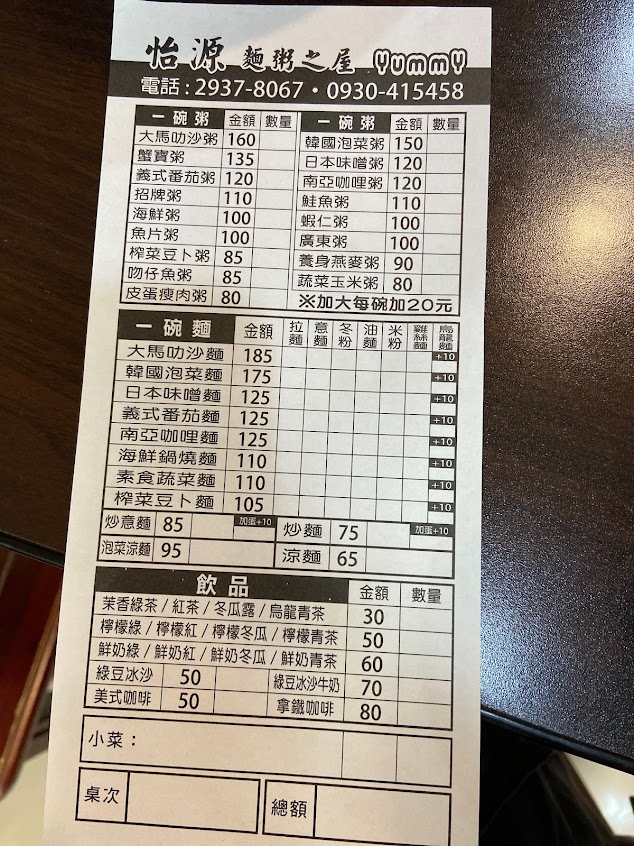 怡源 麵粥之屋 YummY
電話：2937-8067・0930-415458
一碗粥 金額 數量 一碗粥 金額 數量
大馬叻沙粥 160 韓國泡菜粥 150
蟹寶粥 135 日本味噌粥 120
義式番茄粥 120 南亞咖哩粥 120
招牌粥 110 鮭魚粥 110
海鮮粥 100 蝦仁粥 100
魚片粥 100 廣東粥 100
榨菜豆卜粥 85 養身燕麥粥 90
吻仔魚粥 85 蔬菜玉米粥 80
皮蛋瘦肉粥 80 ※加大每碗加20元
一碗麵 金額 拉麵 意麵 冬粉 油麵 米粉 雞絲麵 烏龍麵
大馬叻沙麵 185 +10
韓國泡菜麵 175 +10
日本味噌麵 125 +10
義式番茄麵 125 +10
南亞咖哩麵 125 +10
海鮮鍋燒麵 110 +10
素食蔬菜麵 110 +10
榨菜豆卜麵 105 +10
炒意麵 85 加蛋+10 炒麵 75 加蛋+10
泡菜涼麵 95 涼麵 65
飲品 金額 數量
茉香綠茶 / 紅茶 / 冬瓜露 / 烏龍青茶 30
檸檬綠 / 檸檬紅 / 檸檬冬瓜 / 檸檬青茶 50
鮮奶綠 / 鮮奶紅 / 鮮奶冬瓜 / 鮮奶青茶 60
綠豆冰沙 50 綠豆冰沙牛奶 70
美式咖啡 50 拿鐵咖啡 80
小菜：
桌次 總額